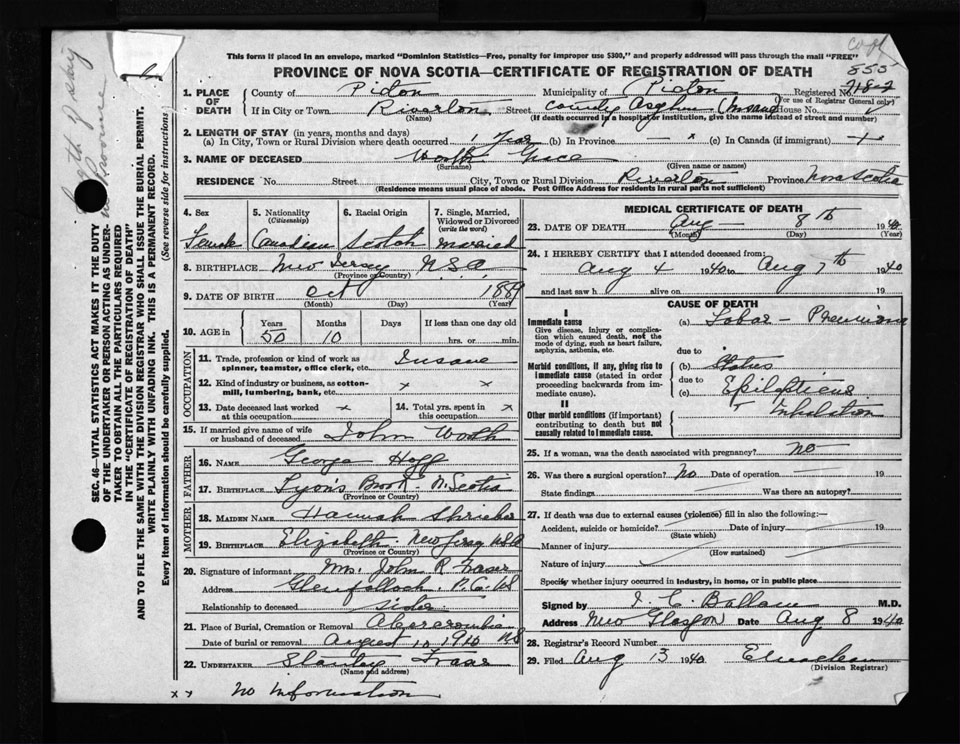 This form if placed in an envelope, marked "Dominion Statistics—Free, penalty for improper use $300," and properly addressed will pass through the mail "FREE"
PROVINCE OF NOVA SCOTIA—CERTIFICATE OF REGISTRATION OF DEATH
copy
555
1. PLACE OF DEATH County of Picton Municipality of Picton Registered No.
(For use of Registrar General only)
If in City or Town Riverton Street County Asylum (Insane) House No.
(Name) (If death occurred in a hospital or institution, give name instead of street and number)
2. LENGTH OF STAY (in years, months and days)
(a) In City, Town or Rural Division where death occurred 1 Year (b) In Province x (c) In Canada (if immigrant)
3. NAME OF DECEASED Worth Grace
(Surname) (Given name or names)
RESIDENCE No. Street City, Town or Rural Division Riverton Province Nova Scotia
(Residence means usual place of abode. Post Office Address for residents in rural parts not sufficient)
4. Sex 5. Nationality (Citizenship) 6. Racial Origin 7. Single, Married, Widowed or Divorced (write the word)
Female Canadian Scotch Married
8. BIRTHPLACE New Jersey U.S.A.
(Province or Country)
9. DATE OF BIRTH Oct 1889
(Month) (Day) (Year)
10. AGE in Years Months Days If less than one day old
50 10 hrs. or min.
OCCUPATION
11. Trade, profession or kind of work as spinner, teamster, office clerk, etc. Insane
12. Kind of industry or business, as cotton-mill, lumbering, bank, etc. x x
13. Date deceased last worked at this occupation x 14. Total yrs. spent in this occupation x
15. If married give name of wife or husband of deceased John Worth
FATHER
16. NAME George Hogg
17. BIRTHPLACE Lyon's Brook N. Scotia
(Province or Country)
MOTHER
18. MAIDEN NAME Hannah
19. BIRTHPLACE Elizabeth New Jersey USA
(Province or Country)
20. Signature of informant Mrs. John R Fraser
Address
Relationship to deceased sister
21. Place of Burial, Cremation or Removal Abercrombie
Date of burial or removal August 1940 NS
22. UNDERTAKER Stanley Fraser
(Name and address)
x x no information
MEDICAL CERTIFICATE OF DEATH
23. DATE OF DEATH Aug 8th 1940
(Month) (Day) (Year)
24. I HEREBY CERTIFY that I attended deceased from:
Aug 4 1940 to Aug 7th 1940
and last saw h alive on 19
CAUSE OF DEATH
I
Immediate cause
Give disease, injury or complication which caused death, not the mode of dying, such as heart failure, asphyxia, asthenia, etc.
(a) Lobar - Pneumonia
due to
Morbid conditions, if any, giving rise to immediate cause (stated in order proceeding backwards from immediate cause).
(b) Status
due to
(c) Epilepticus
Inhalation
II
Other morbid conditions (if important) contributing to death but not causally related to immediate cause.
25. If a woman, was the death associated with pregnancy? No
26. Was there a surgical operation? No Date of operation 19
State findings Was there an autopsy?
27. If death was due to external causes (violence) fill in also the following:—
Accident, suicide or homicide? Date of injury 19
(State which)
Manner of injury
(How sustained)
Nature of injury
Specify whether injury occurred in industry, in home, or in public place
Signed by M.D.
Address New Glasgow Date Aug 8 1940
28. Registrar's Record Number
29. Filed Aug 13 1940
(Division Registrar)
length of stay
no Province
SEC. 46—VITAL STATISTICS ACT MAKES IT THE DUTY
OF THE UNDERTAKER OR PERSON ACTING AS UNDER-
TAKER TO OBTAIN ALL THE PARTICULARS REQUIRED
IN THE "CERTIFICATE OF REGISTRATION OF DEATH"
AND TO FILE THE SAME WITH THE DIVISION REGISTRAR WHO SHALL ISSUE THE BURIAL PERMIT.
WRITE PLAINLY WITH UNFADING INK. THIS IS A PERMANENT RECORD.
Every item of Information should be carefully supplied. (See reverse side for instructions)